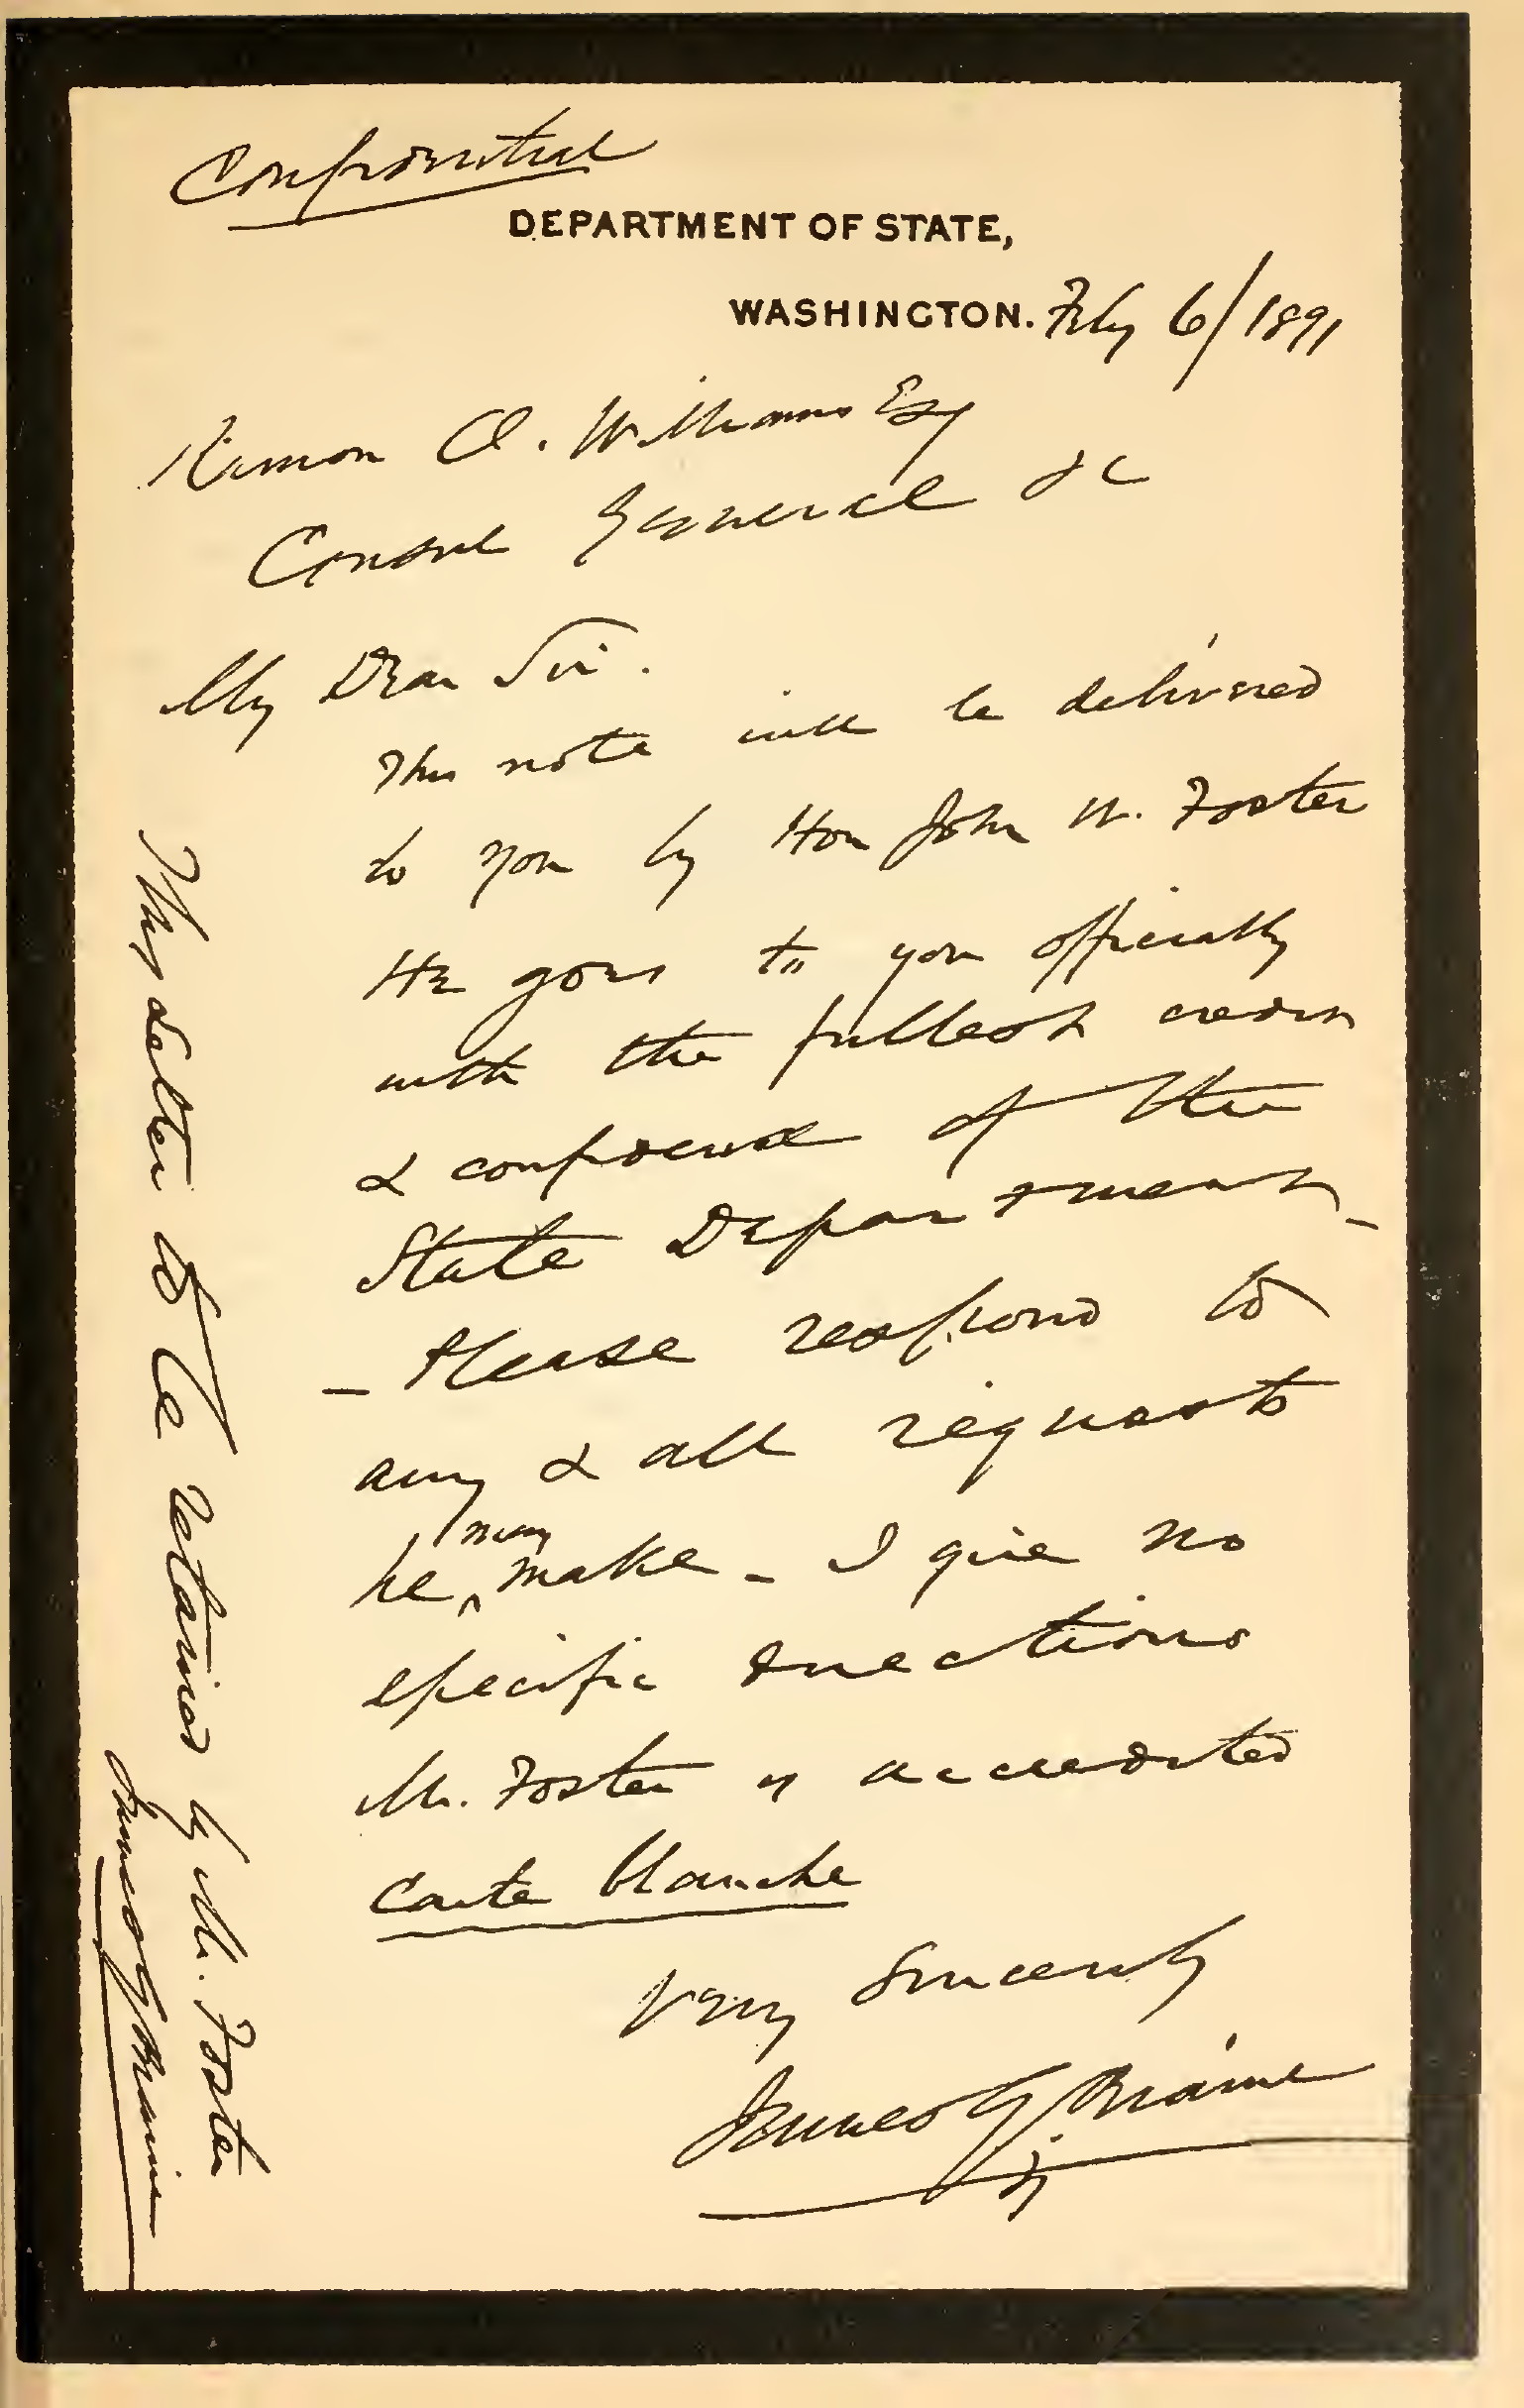 Confidential
DEPARTMENT OF STATE,
WASHINGTON. Feby 6/1891
Ramon O. Williams Esq
Consul General &c
My Dear Sir.
This note will be delivered
to you by Hon John W. Foster
He goes to you officially
with the fullest credit
& confidence of the
State Department -
- Please respond to
any & all requests
he may make - I give no
specific directions
Mr. Foster is accredited
Carte blanche
Very Sincerely
James G Blaine
This letter to be retained by Mr. Foster
James G Blaine